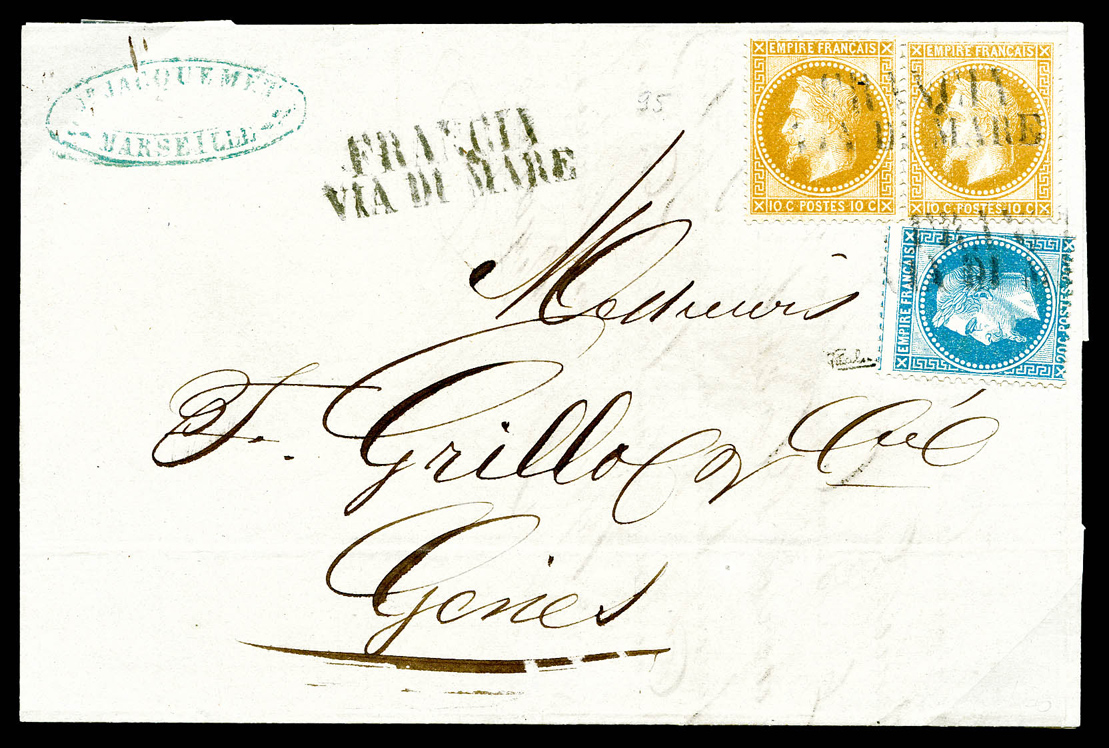 JACQUEMET
MARSEILLE
95
FRANCIA
VIA DI MARE
EMPIRE FRANCAIS
10 C - POSTES - 10 C
EMPIRE FRANCAIS
10 C - POSTES - 10 C
FRANCIA
VIA DI MARE
EMPIRE FRANCAIS
20 C - POSTES - 20 C
FRAN
VIA DI M
Messieurs
F. Grillo & Cie
Gênes